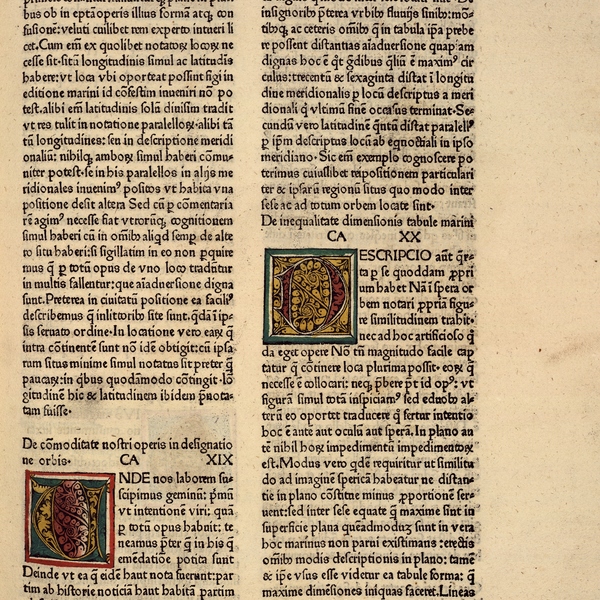 bus ob in eptā operis illius formā atq; con
fusione: veluti cuilibet rem experto intueri li
cet. Cum em̄ ex quolibet notatoꝝ locoꝝ ne
cesse sit· sitū longitudinis simul ac latitudis
habere: vt loca vbi oporteat possint sigi in
editione marini id cōfestim inueniri nō po
test. alibi em̄ latitudinis solā diuisim tradit
vt res tulit in notatione paralleloꝝ· alibi tā
tū longitudines: seu in descriptione meridi
onaliū: nihilq; amboꝝ simul haberi cōmu-
niter potest· se in his paralleloꝝ in alijs me
ridionales inuenim⁹ positos vt habita vna
positione desit altera Sed cū ꝑ cōmentaria
rē agim⁹ necesse fiat vtrorūq; cognitionem
simul haberi cū in omīb⁹ aliqd semꝑ de alte
ro situ haberi: si sigillatim in eo non ꝑquire
mus q̄ ꝑ totū opus de vno loco tradūtur
in multis fallentur: que aīaduersione digna
sunt. Preterea in ciuitatū positione ea facili⁹
describemus q̄ in litorib⁹ site sunt. q̄dā ipi-
sis seruato ordine· In locatione vero earꝝ q̄
intra cōtinentē sunt nō idē obtigit: cū ipsa
rum situs minime simul notatus sit preter q̄
paucaꝝ: in qb⁹us quodāmodo cōtingit· lō
gitudinē hic & latitudinem ibidem p̄nota-
tam fuisse·
De cōmoditate nostri operis in designatio
ne orbis· CA XIX
NDE nos laborem su-
scipimus geminū: pⁱmū
vt intentionē viri: quā
ꝑ totū opus habuit: te
neamus p̄ter q̄ in his q̄
emēdatiōe potita sunt
Deinde vt ea q̄ eidē haut nota fuerunt: par
tim ab historie noticiā haut habitā partim
insignorib⁹ p̄terea vrbib⁹ fluuijs sinib⁹: mō-
tibq; ac ceteris omīb⁹ q̄ in tabula ip̄a prebe
re possent distantias aīaduersione quapiam
dignas hoc ē q̄t ḡdibus qliū ē maxim⁹ cir
culus: trecentū & sexaginta distat ī longitu
dine meridionalis ꝑ locū descriptus a meri
dionali q̄ vltimū finē occasus terminat· Se-
cundū vero latitudinē q̄ntū distat paralell⁹
ꝑ ip̄m descriptus locū ab eqnoctiali in ipso
meridiano· Sic em̄ exemplo cognoscere po
terimus cuiuslibet repositionem particulari
ter & ipsarū regionū situs quo modo inter
sese ac ad totum orbem locate sint·
De inequalitate dimensionis tabule marini
CA XX
ESCRIPCIO aūt q̄r-
ta ꝑ se quoddam ꝓpri
um habet Nā ī spera or
bem notari ꝓpriā figu-
re similitudinem trabit·
nec ad hoc artificioso q̄
da eget opere Nō tn̄ magnitudo facile cap
tatur q̄ cōtinere loca plurima possit· eoꝝ q̄
necesse ē collocari: neq; p̄bere p̄t id op⁹: vt
figurā simul totā inspiciam⁹ sed eduob⁹ al-
terū eo oportet traducere q̄ fertur intentio
hoc ē ante aut oculū aut sperā. In plano au
tē nihil hoꝝ impedimentū impedimentoꝝ
est. Modus vero qdē requiritur vt similitu
do ad imaginē spericā habeatur ne distan-
tie in plano cōstitue minus ꝓportionē ser-
uent: sed inter sese equate q̄ maxime sint in
superficie plana queadmoduȝ sunt in vera
hoc marinus non parui existimans: erectis
omīb⁹ modis descriptionis in plano: tamē
& ip̄e vsus esse videtur ea tabule forma: q̄
maxime dimēsiones iniquas faceret. Lineas